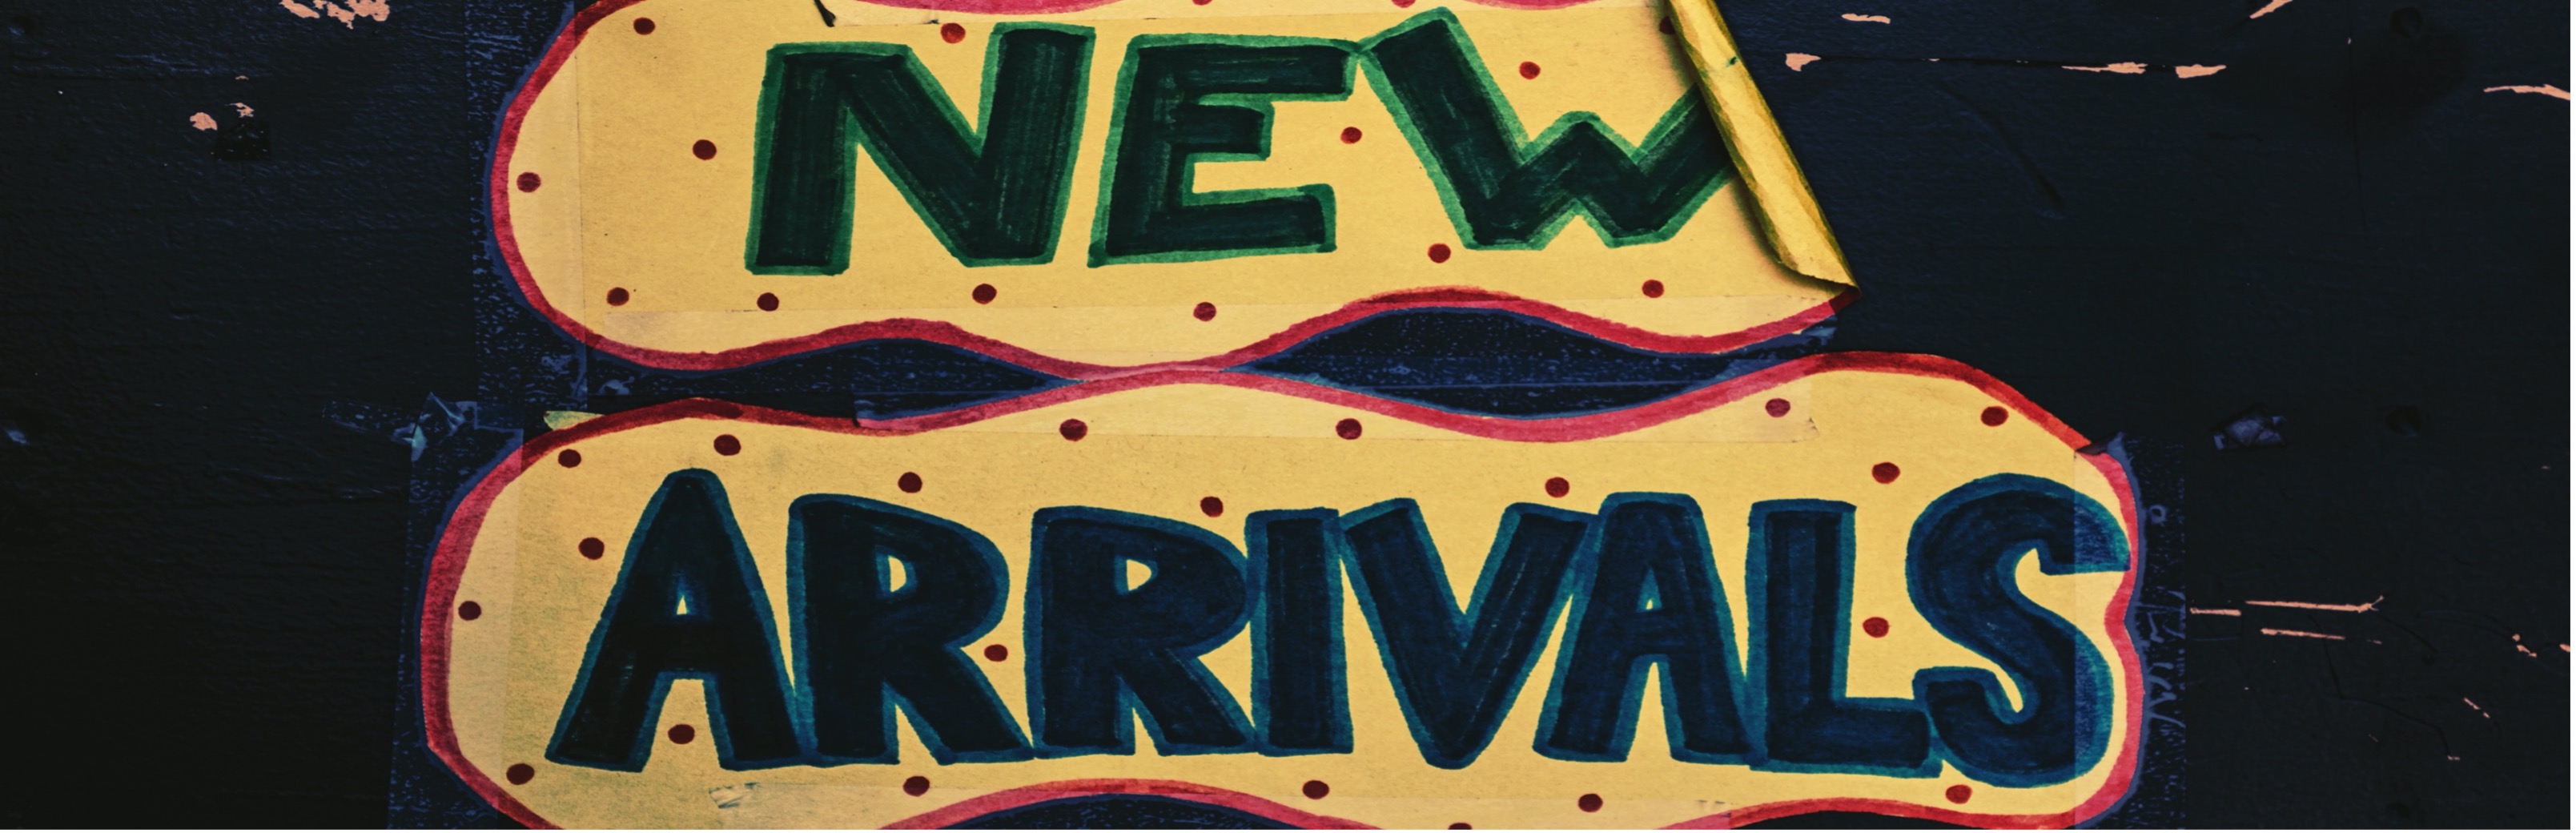 NEW
ARRIVALS